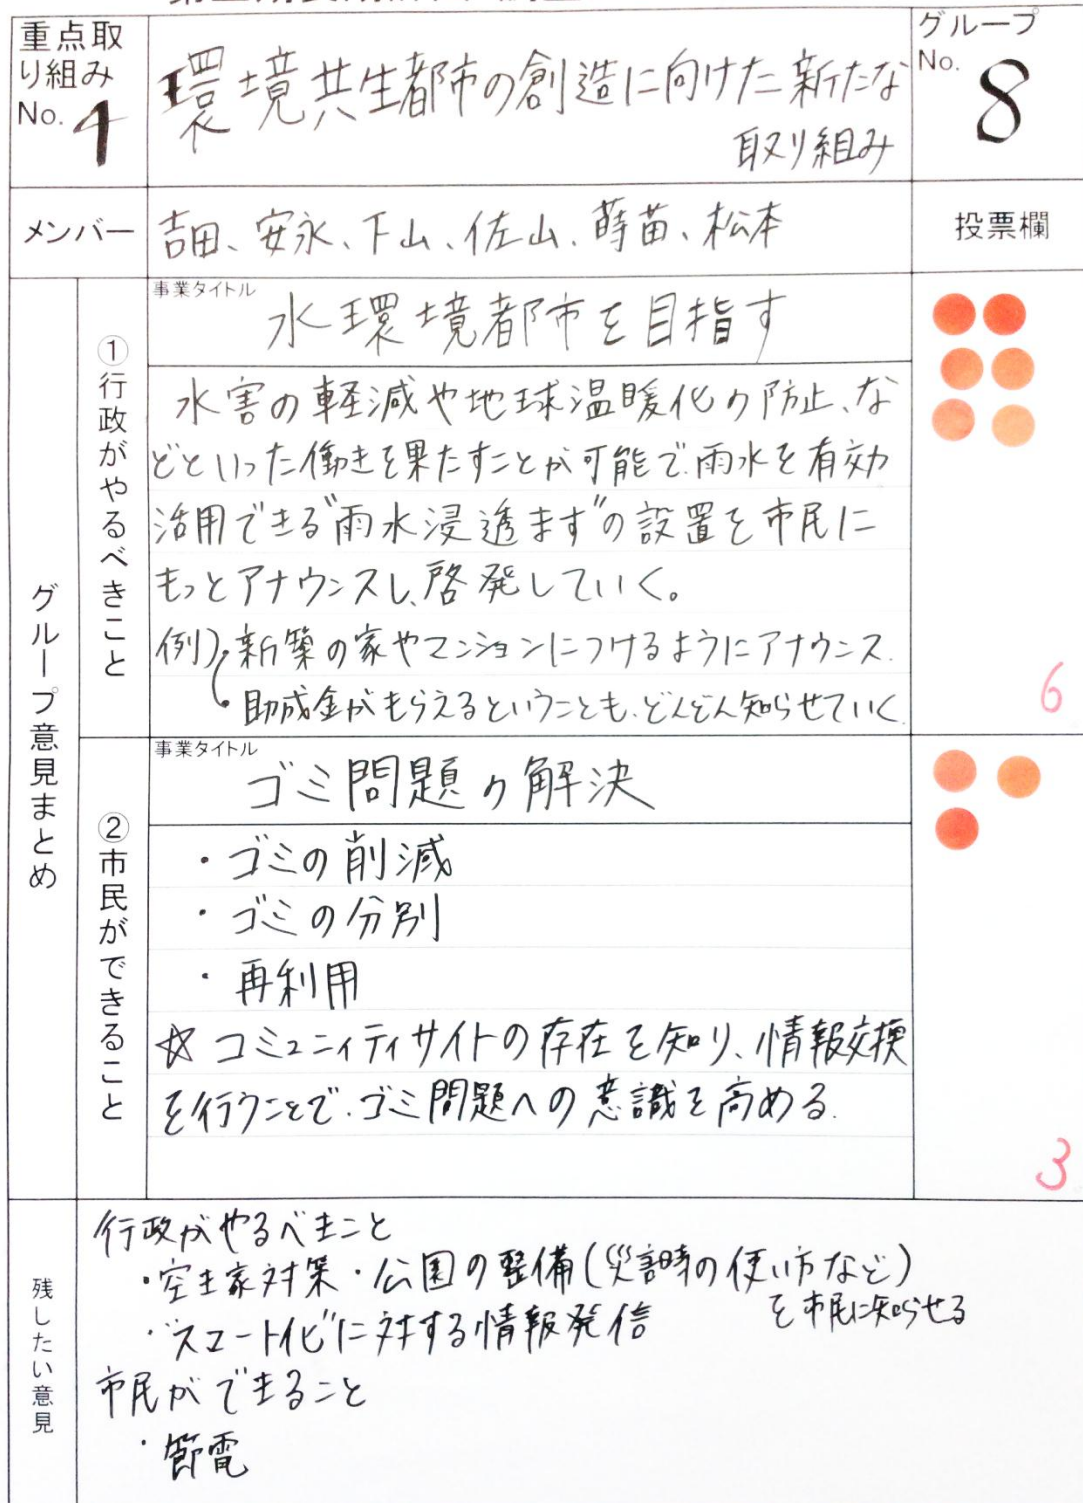 重点取
り組み
No. 4
環境共生都市の創造に向けた新たな
取り組み
グループ
No. 8
メンバー
吉田、安永、下山、佐山、蒔苗、松本
投票欄
グループ意見まとめ
①行政がやるべきこと
事業タイトル
水環境都市を目指す
水害の軽減や地球温暖化の防止、な
どといった働きを果たすことが可能で、雨水を有効
活用できる"雨水浸透ます"の設置を市民に
もっとアナウンスし、啓発していく。
例)・新築の家やマンションにつけるようにアナウンス.
・助成金がもらえるということも、どんどん知らせていく.
6
②市民ができること
事業タイトル
ゴミ問題の解決
・ゴミの削減
・ゴミの分別
・再利用
☆コミュニティサイトの存在を知り、情報交換
を行うことで、ゴミ問題への意識を高める.
3
残したい意見
行政がやるべきこと
・空き家対策・公園の整備(災害時の使い方など)
を市民に知らせる
・"スマート化"に対する情報発信
市民ができること
・節電